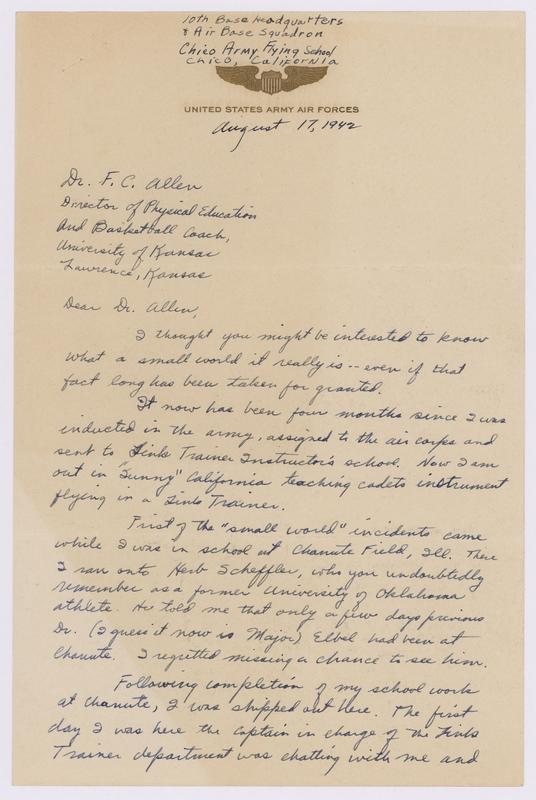 10th Base Headquarters
& Air Base Squadron
Chico Army Flying School
Chico, California
UNITED STATES ARMY AIR FORCES
August 17, 1942
Dr. F. C. Allen
Director of Physical Education
And Basketball Coach,
University of Kansas
Lawrence, Kansas
Dear Dr. Allen,
I thought you might be interested to know
what a small world it really is -- even if that
fact long has been taken for granted.
It now has been four months since I was
inducted in the army, assigned to the air corps and
sent to Link Trainer Instructor's school. Now I am
out in "Sunny" California teaching cadets instrument
flying in a Link Trainer.
First of the "small world" incidents came
while I was in school at Chanute Field, Ill. There
I ran onto Herb Scheffler, who you undoubtedly
remember as a former University of Oklahoma
athlete. He told me that only a few days previous
Dr. (I guess it now is Major) Elbel had been at
Chanute. I regretted missing a chance to see him.
Following completion of my school work
at Chanute, I was shipped out here. The first
day I was here the captain in charge of the Link
Trainer department was chatting with me and